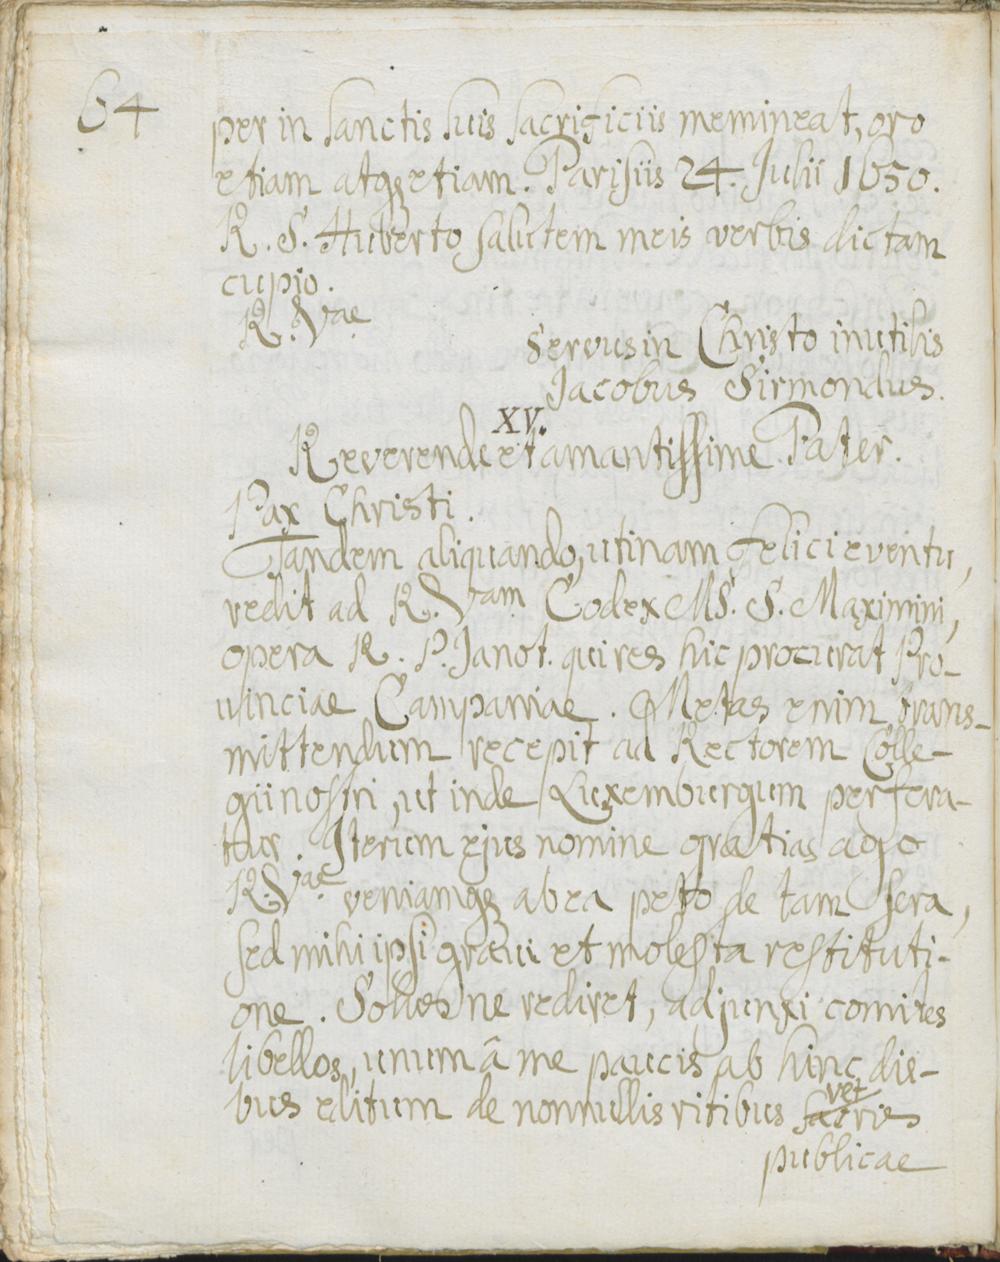 64
per in sanctis suis sacrificiis memineat, oro
etiam atq; etiam. Parisiis 24. Julii 1650.
R. S. Huberto salutem meis verbis dictam
cupio.
R. Vae
Servus in Christo inutilis
Jacobus Sirmondus.
XV.
Reverende et amantissime Pater.
Pax Christi.
Tandem aliquando, utinam felici eventu,
redit ad R. Vam Codex MS. S. Maximini,
opera R. P. Janot. qui res hic procurat Pro-
uinciae Campaniae. Metas enim trans-
mittendum recepit ad Rectorem Colle-
gii nostri, ut inde Luxemburgum perfera-
tur. Iterum ejus nomine gratias ago
R. Vae veniamq; ab ea peto de tam sera,
sed mihi ipsi gravi et molesta restituti-
one. Solus ne rediret, adjunxi comites
libellos, unum â me paucis ab hinc die-
bus editum de nonnullis ritibus sacries vet
publicae